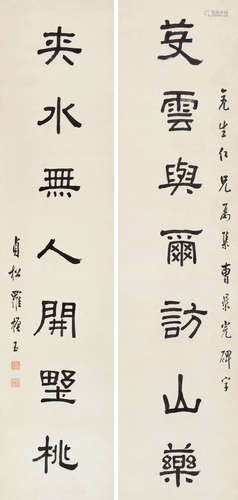 生仁兄屬集曹景完碑字
芟雲與爾訪山藥
夾水無人開墅桃
貞松羅振玉